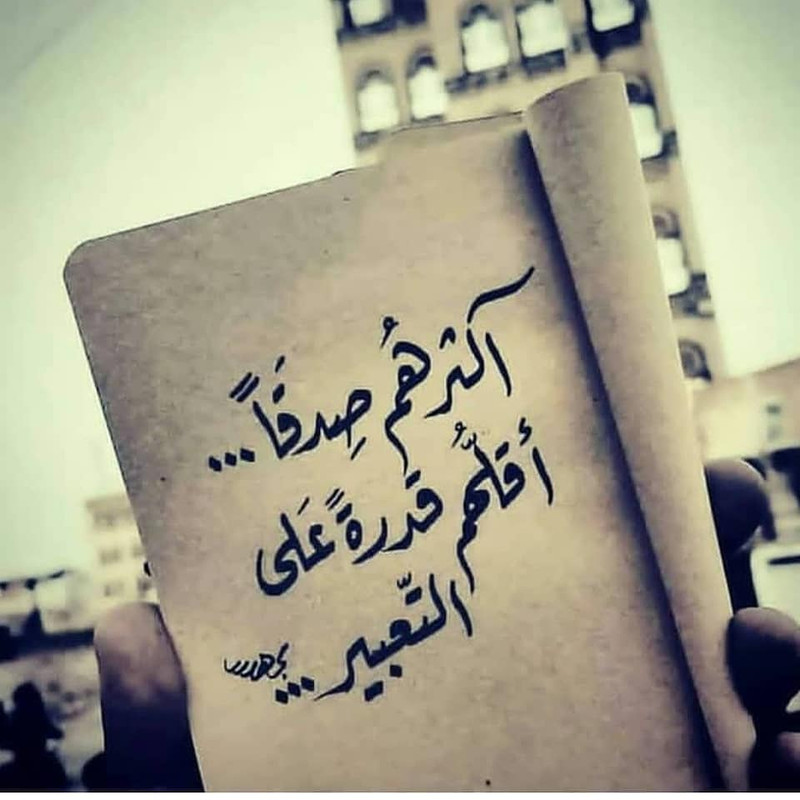 اكثرهُم صِدقَاً...
أقلّهُم قدرةً عَلى
التّعبير...